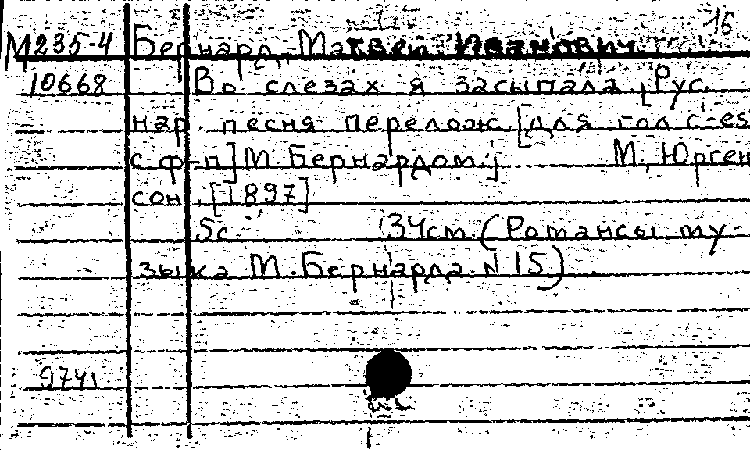 15
М235-4 Бернард, Матвей Иванович
10668 Во слезах я засыпала. [Рус.
нар. песня перелож. [для гол. c-es
с ф-п] М. Бернардом. М., Юрген
сон, [1897]
5с. 34см (Романсы му-
зыка М. Бернарда. N 15)
9741